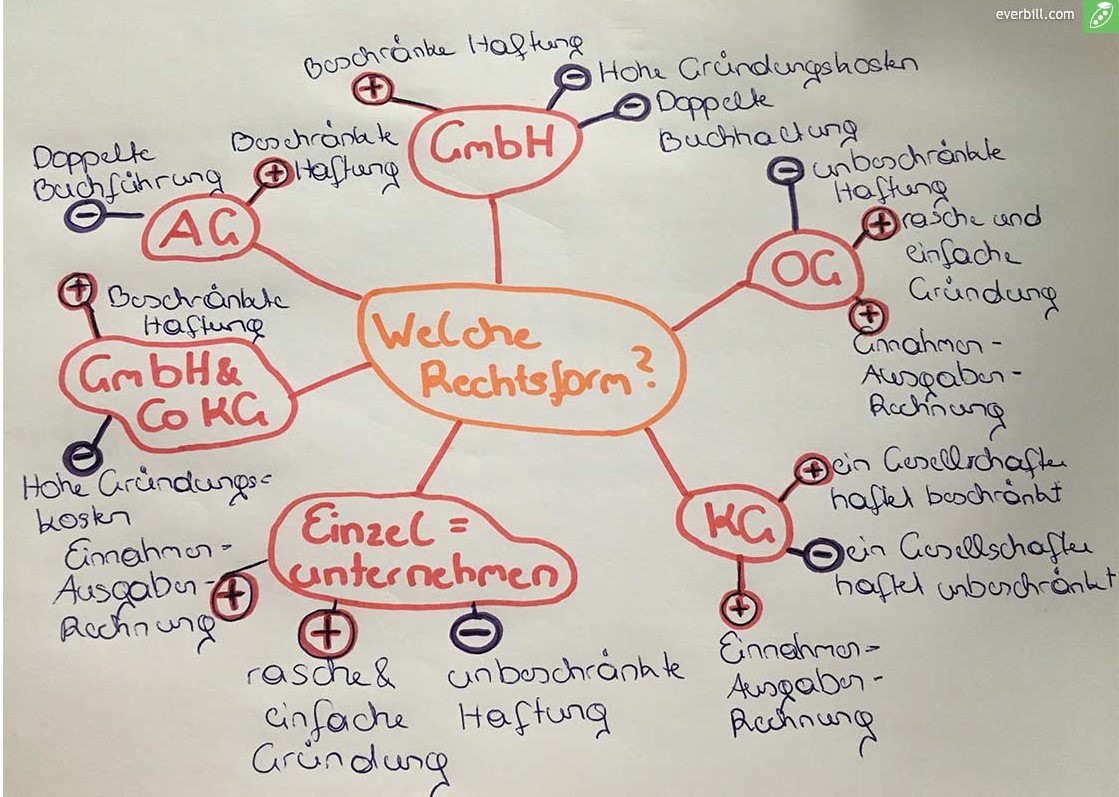 everbill.com
Welche
Rechtsform?
GmbH
Beschränkte Haftung
Hohe Gründungskosten
Doppelte
Buchhaltung
OG
unbeschränkte
Haftung
rasche und
einfache
Gründung
Einnahmen-
Ausgaben-
Rechnung
KG
ein Gesellschafter
haftet beschränkt
ein Gesellschafter
haftet unbeschränkt
Einnahmen=
Ausgaben-
Rechnung
Einzel=
unternehmen
unbeschränkte
Haftung
rasche &
einfache
Gründung
Einnahmen=
Ausgaben-
Rechnung
GmbH &
Co KG
Beschränkte
Haftung
Hohe Gründungs=
kosten
AG
Doppelte
Buchführung
Beschränkte
Haftung